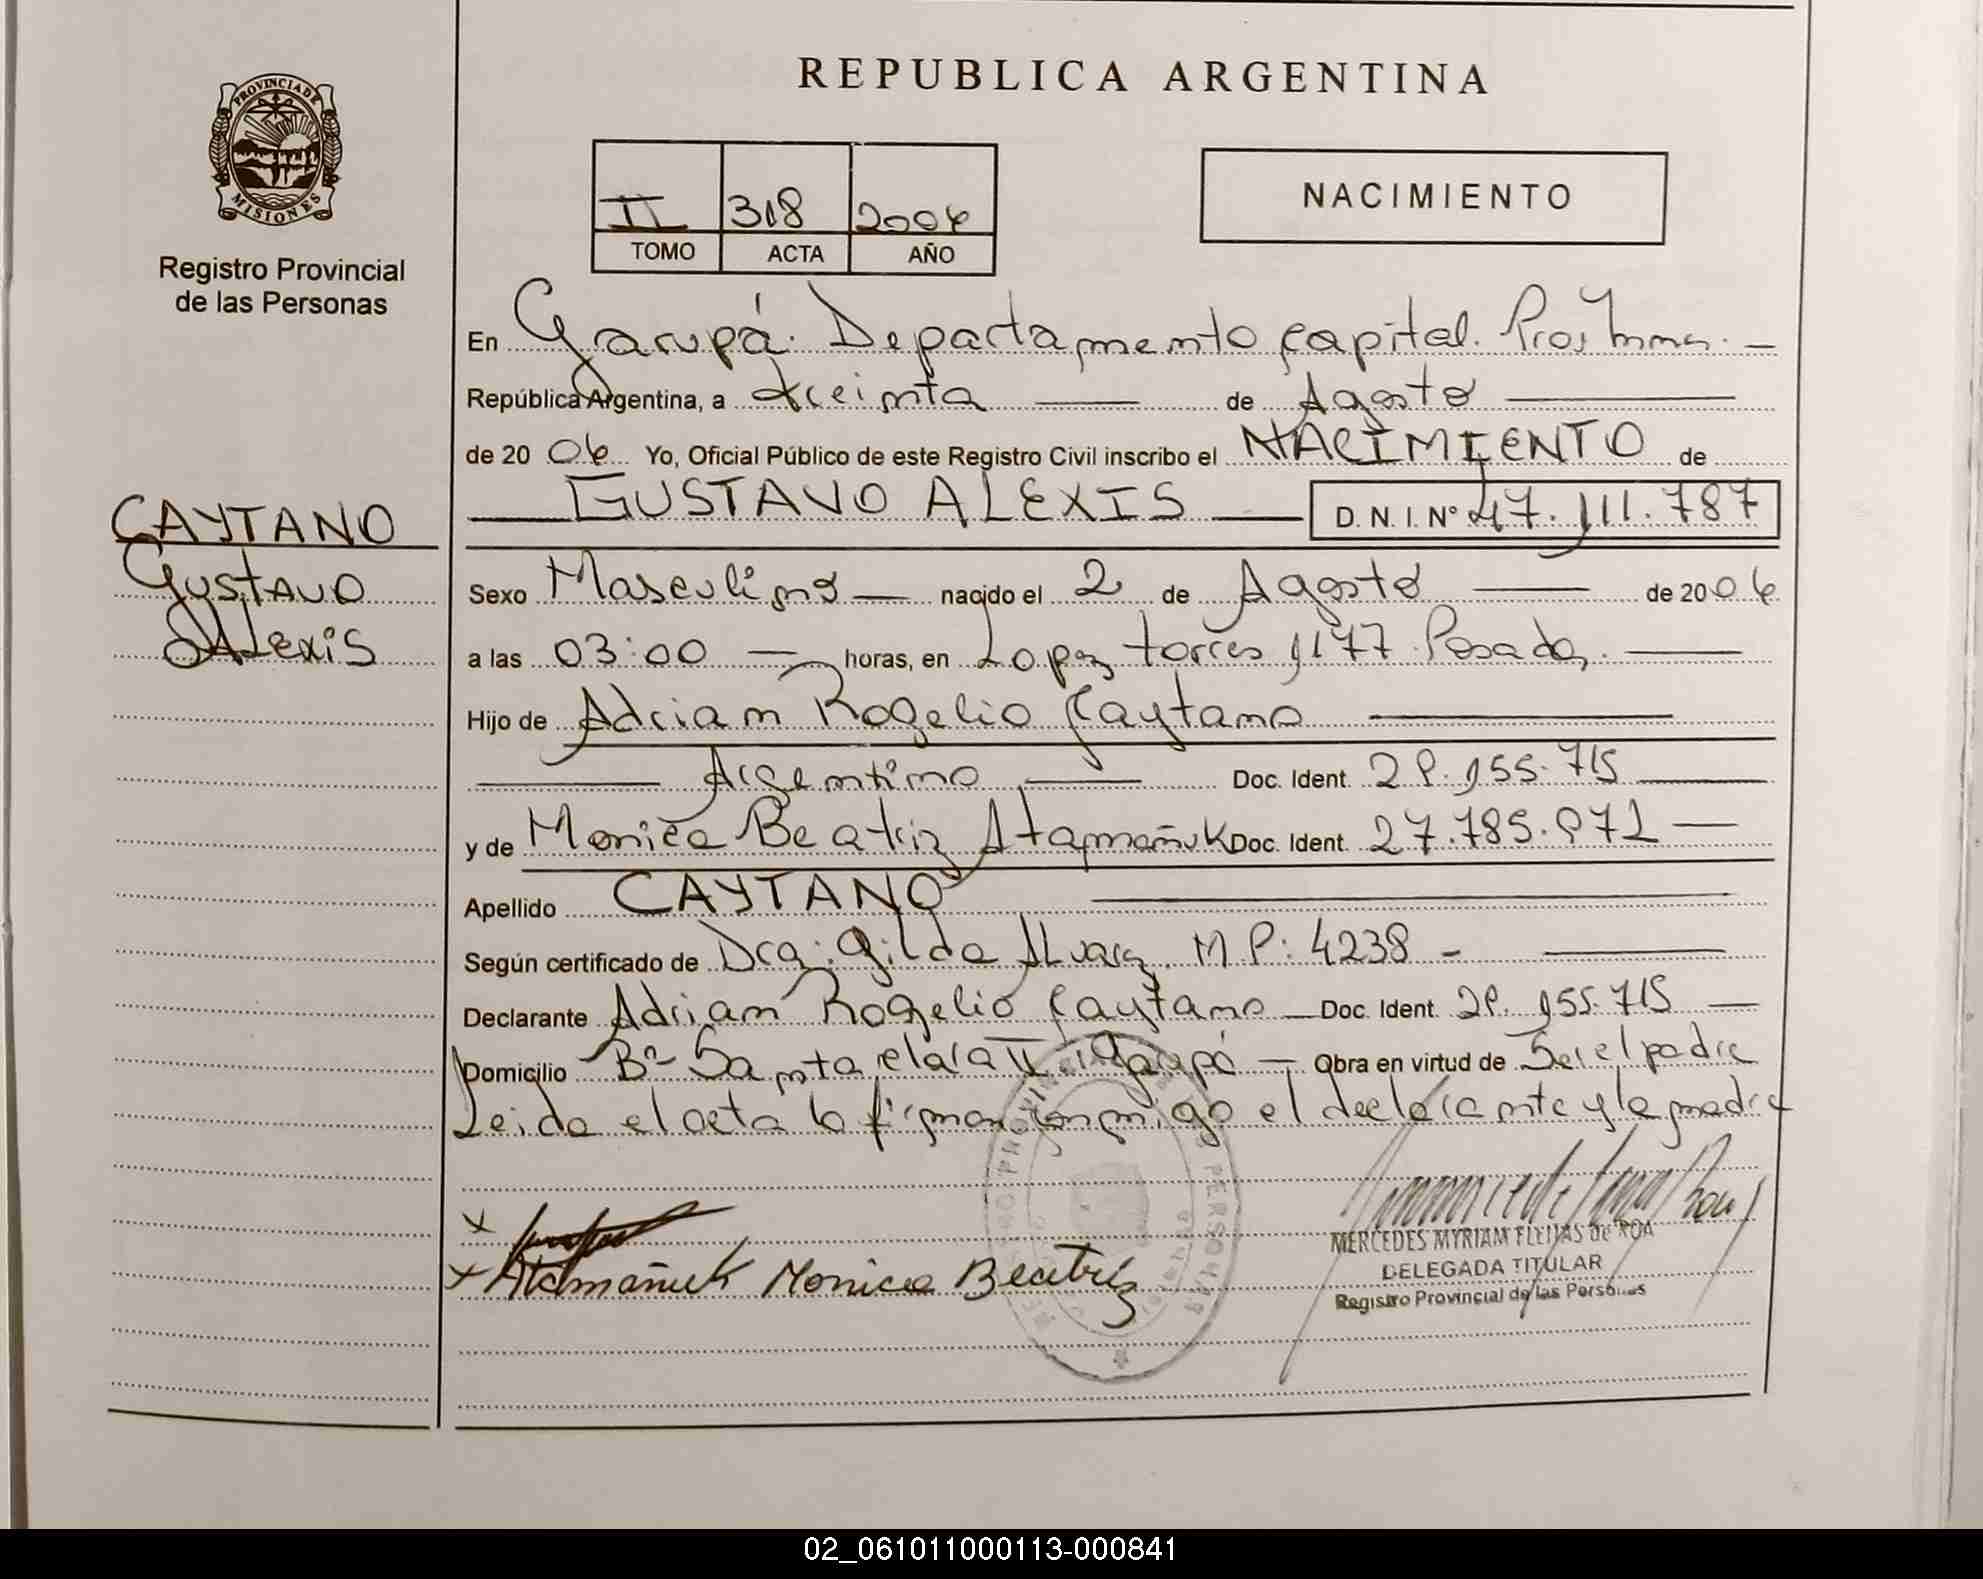 REPUBLICA ARGENTINA
PROVINCIA DE MISIONES
Registro Provincial
de las Personas
II 318 2006
TOMO ACTA AÑO
NACIMIENTO
En Garupá. Departamento Capital.
República Argentina, a treinta de Agosto
de 2006 Yo, Oficial Público de este Registro Civil inscribo el NACIMIENTO de
GUSTAVO ALEXIS D.N.I. N° 47.111.787
CAYTANO
Gustavo
Alexis
Sexo Masculino nacido el 2 de Agosto de 2006
a las 03:00 horas, en Lopez torres 1177 Posadas.
Hijo de Adrian Rogelio Caytano
Argentino Doc. Ident. 29.155.715
y de Monica Beatriz Atamañuk Doc. Ident. 27.785.972
Apellido CAYTANO
Según certificado de Dra: Gilda Alvarez M.P: 4238 -
Declarante Adrian Rogelio Caytano Doc. Ident. 29.155.715
Domicilio B° Santa Clara II Garupá Obra en virtud de Ser el padre
Leida el acta la firman conmigo el declarante y la madre
x
x Atamañuk Monica Beatriz
MERCEDES MYRIAM FLEITAS de ROA
DELEGADA TITULAR
Registro Provincial de las Personas
02_061011000113-000841